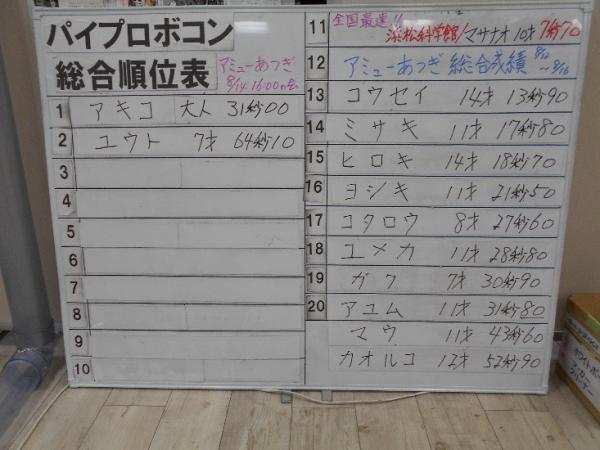 パイプロボコン
総合順位表
アミューあつぎ
8/14 16:00の会
1 アキコ 大人 31秒00
2 ユウト 7才 64秒10
3
4
5
6
7
8
9
10
11 全国最速!!
浜松科学館/マサナオ 10才 7秒70
12 アミューあつぎ 総合成績 8/12
~8/16
13 コウセイ 14才 13秒90
14 ミサキ 11才 17秒80
15 ヒロキ 14才 18秒70
16 ヨシキ 11才 21秒50
17 コタロウ 8才 27秒60
18 ユメカ 11才 28秒80
19 ガク 7才 30秒90
20 アユム 11才 31秒80
マウ 11才 43秒60
カオルコ 12才 52秒90